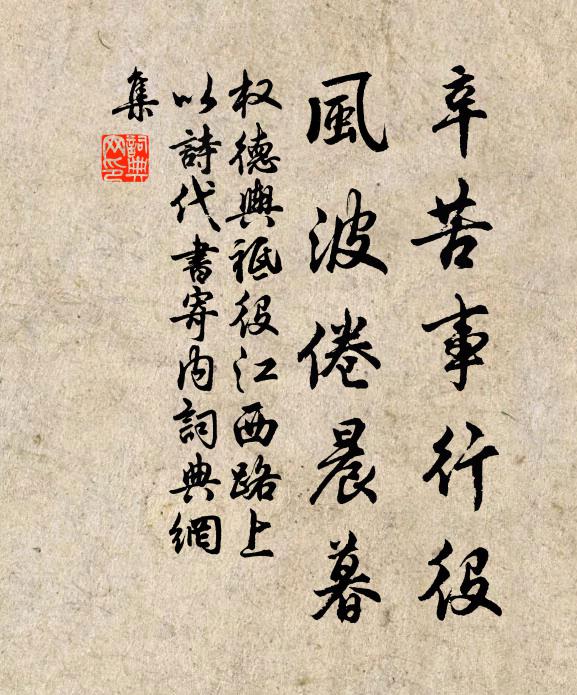 辛苦事行役
風波倦晨暮
权德輿祗役江西路上
以詩代書寄内詞典網
集
詞典
网印